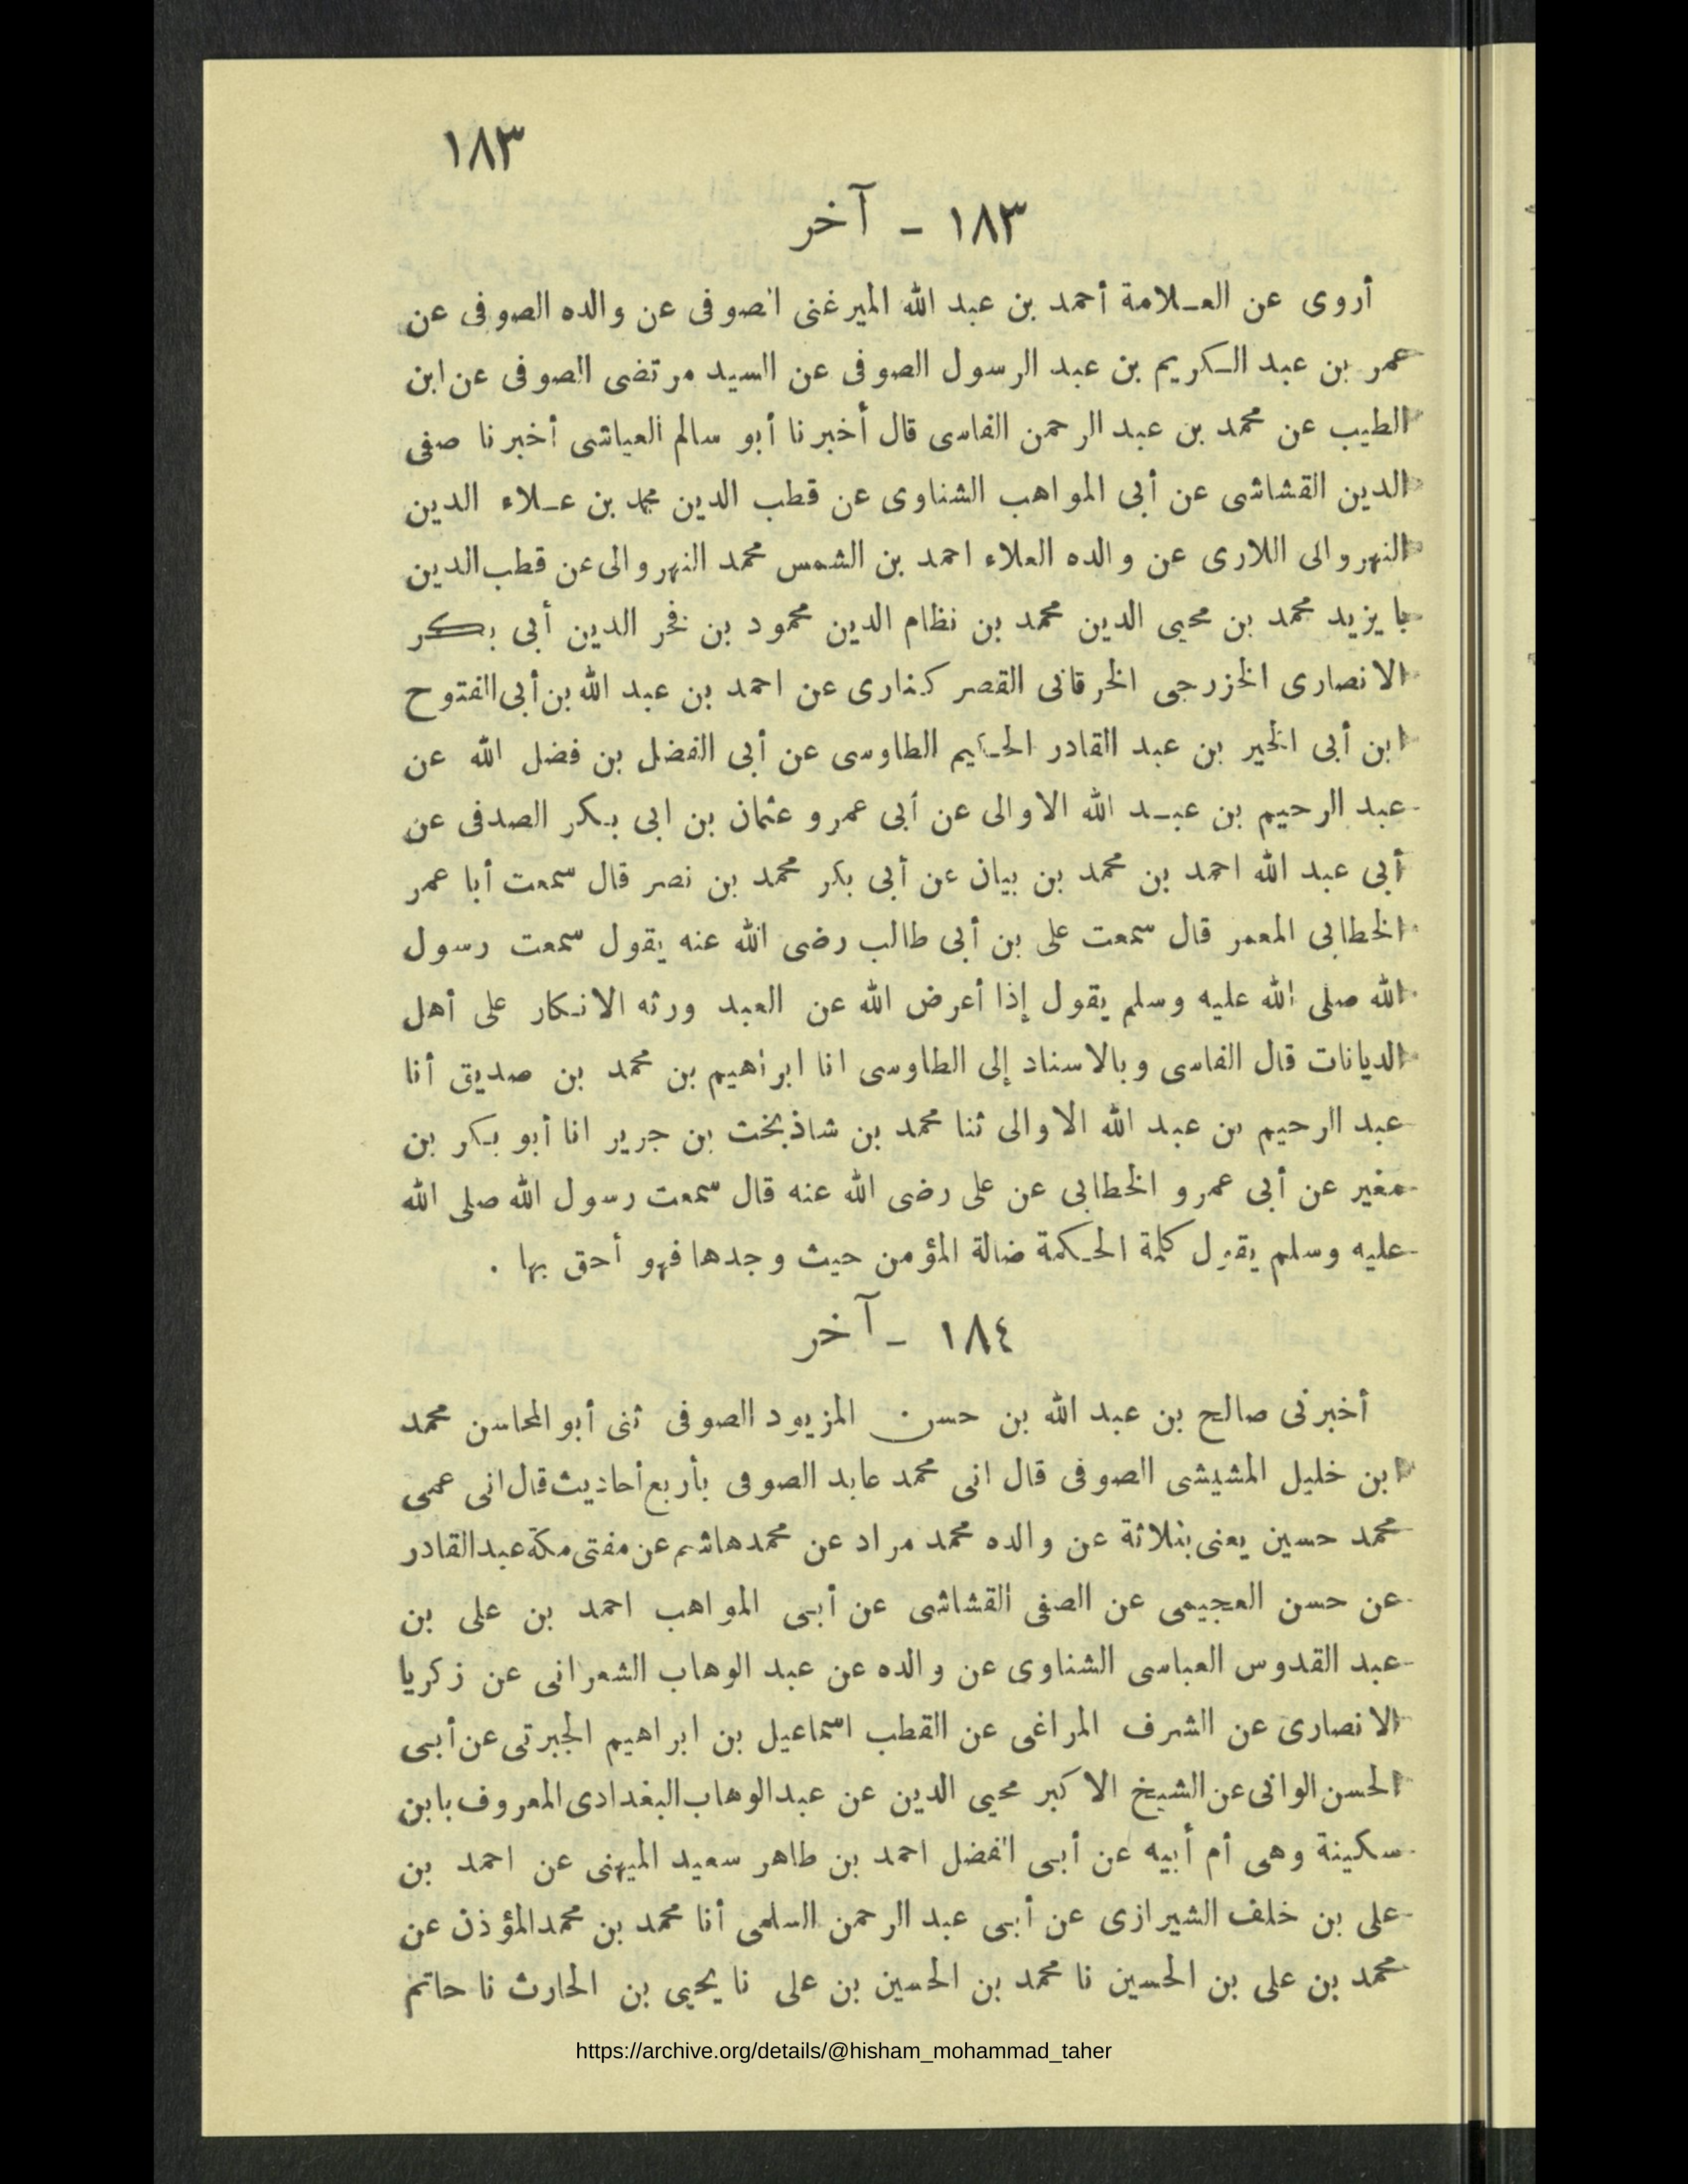 ١٨٣
١٨٣ - آخر
أروى عن العـلامة أحمد بن عبد الله الميرغنى الصوفى عن والده الصوفى عن
عمر بن عبد الـكريم بن عبد الرسول الصوفى عن السيد مرتضى الصوفى عن ابن
الطيب عن محمد بن عبد الرحمن الفاسى قال أخبرنا أبو سالم العياشى أخبرنا صفى
الدين القشاشى عن أبى المواهب الشناوى عن قطب الدين محمد بن عـلاء الدين
النهروالى اللارى عن والده العلاء احمد بن الشمس محمد النهروالى عن قطب الدين
بايزيد محمد بن محيى الدين محمد بن نظام الدين محمود بن فخر الدين أبى بكر
الانصارى الخزرجى الخرقانى القصر كنارى عن احمد بن عبد الله بن أبى الفتوح
ابن أبى الخير بن عبد القادر الطاوسى عن أبى الفضل بن فضل الله عن
عبد الرحيم بن عبـد الله الاوالى عن أبى عمرو عثمان بن ابى بـكر الصدفى عن
أبى عبد الله احمد بن محمد بن بيان عن أبى بكر محمد بن نصر قال سمعت أبا عمر
الخطابى المعمر قال سمعت على بن أبى طالب رضى الله عنه يقول سمعت رسول
الله صلى الله عليه وسلم يقول إذا أعرض الله عن العبد ورثه الانـكار على أهل
الديانات قال الفاسى وبالاسناد إلى الطاوسى انا ابراهيم بن محمد بن صديق أنا
عبد الرحيم بن عبد الله الاوالى ثنا محمد بن شاذبخت بن جرير انا أبو بـكر بن
مغير عن أبى عمرو الخطابى عن على رضى الله عنه قال سمعت رسول الله صلى الله
عليه وسلم يقول كلمة الحـكمة ضالة المؤمن حيث وجدها فهو أحق بها .
١٨٤ - آخر
أخبرنى صالح بن عبد الله بن حسن المزيود الصوفى ثنى أبو المحاسن محمد
ابن خليل المشيشى الصوفى قال انى محمد عابد الصوفى بأربع أحاديث قال انى عمى
محمد حسين يعنى بثلاثة عن والده محمد مراد عن محمد هاشم عن مفتى مكة عبد القادر
عن حسن العجيمى عن الصفى القشاشى عن أبـى المواهب احمد بن على بن
عبد القدوس العباسى الشناوى عن والده عن عبد الوهاب الشعرانى عن زكريا
الانصارى عن الشرف المراغى عن القطب اسماعيل بن ابراهيم الجبرتى عن أبـى
الحسن الوانى عن الشيخ الاكبر محيى الدين عن عبد الوهاب البغدادى المعروف بابن
سكينة وهى أم أبيه عن أبـى الفضل احمد بن طاهر سعيد الميهنى عن احمد بن
على بن خلف الشيرازى عن أبـى عبد الرحمن السلمى أنا محمد بن محمد المؤذن عن
محمد بن على بن الحسين نا محمد بن الحسين بن على نا يحيى بن الحارث نا حاتم
https://archive.org/details/@hisham_mohammad_taher